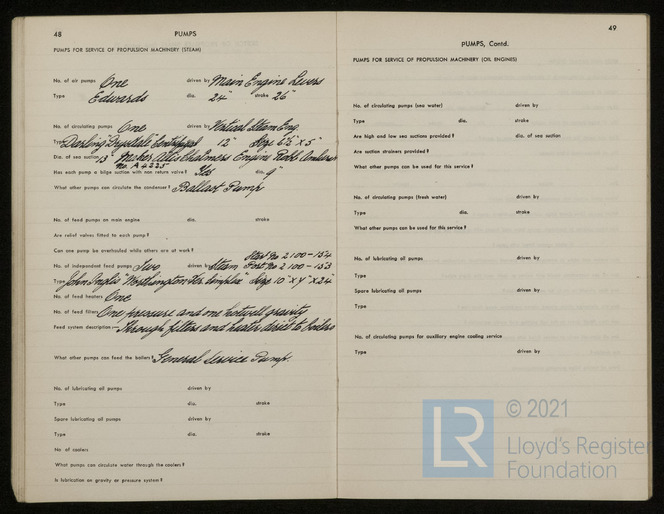 48
PUMPS
PUMPS FOR SERVICE OF PROPULSION MACHINERY (STEAM)
No. of air pumps One driven by Main Engine Levers
Type Edwards dia. 24" stroke 26"
No. of circulating pumps One driven by Vertical Steam Eng.
Type Darling Drysdale Centrifugal 12" Size 6½" x 5"
Dia. of sea suction 13" Maker Allis Chalmers Engine Robb
No. A4225
Has each pump a bilge suction with non return valve? Yes dia. 9"
What other pumps can circulate the condenser? Ballast Pump
No. of feed pumps on main engine dia. stroke
Are relief valves fitted to each pump?
Can one pump be overhauled while others are at work?
Stard No 2100-154
No. of independent feed pumps Two driven by Steam Port No 2100-153
Type John Inglis "Worthington Simplex" Size 10" x 7" x 24"
No. of feed heaters One
No. of feed filters One pressure and one hotwell gravity
Feed system description - Through filters and heater direct to boilers
What other pumps can feed the boilers? General Service Pump.
No. of lubricating oil pumps driven by
Type dia. stroke
Spare lubricating oil pumps driven by
Type dia. stroke
No of coolers
What pumps can circulate water through the coolers?
Is lubrication on gravity or pressure system?
49
PUMPS, Contd.
PUMPS FOR SERVICE OF PROPULSION MACHINERY (OIL ENGINES)
No. of circulating pumps (sea water) driven by
Type dia. stroke
Are high and low sea suctions provided? dia. of sea suction
Are suction strainers provided?
What other pumps can be used for this service?
No. of circulating pumps (fresh water) driven by
Type dia. stroke
What other pumps can be used for this service?
No. of lubricating oil pumps driven by
Type
Spare lubricating oil pumps driven by
Type
No. of circulating pumps for auxiliary engine cooling service
Type driven by
LR
© 2021
Lloyd's Register
Foundation